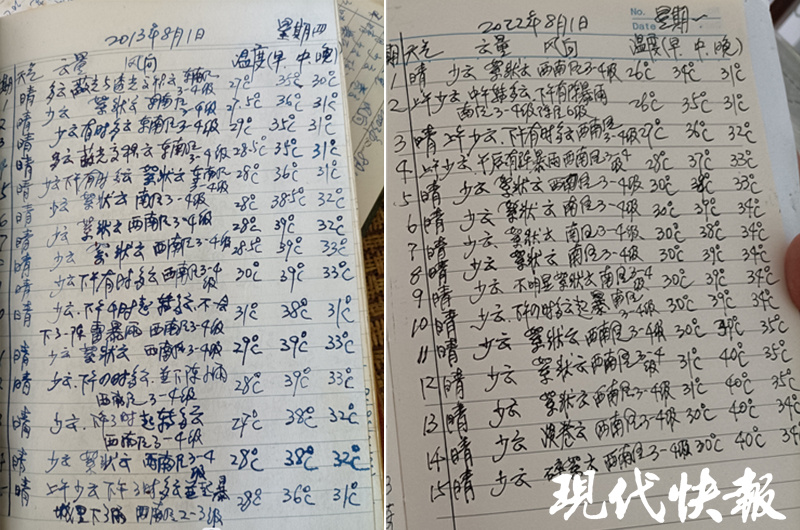 2013年8月1日 星期四
天气 云量 风向 温度(早.中.晚)
晴 多云 东南风3-4级 27℃ 35℃ 30℃
晴 少云 絮状云 东南风3-4级 27.5℃ 36℃ 31℃
晴 少云有时多云 东南风3-4级 29℃ 35℃ 31℃
晴 多云 东南风3-4级 28.5℃ 35℃ 31℃
晴 少云下午有时多云 絮状云 东南风3-4级 28℃ 36℃ 31℃
晴 少云 絮状云 南风3-4级 28℃ 38.5℃ 32℃
晴 少云 絮状云 西南风3-4级 28℃ 39℃ 32℃
晴 少云 絮状云 西南风3-4级 28.5℃ 39℃ 33℃
晴 少云下午有时多云 西南风3-4级 30℃ 39℃ 33℃
晴 少云.下午4时起转多云.不一会 31℃ 38℃ 31℃
下了一阵雷暴雨 西南风3-4级
晴 少云 絮状云 西南风3-4级 29℃ 39℃ 33℃
晴 少云.下午 时多云.并下阵小雨 28℃ 39℃ 33℃
西南风3-4级
晴 少云.下午3时起转多云 27℃ 38℃ 32℃
西南风3-4级
晴 少云 絮状云 西南风3-4级 28℃ 38℃ 32℃
晴 上午少云下午3时多云 28℃ 36℃ 31℃
城里下了雨 西南风2-3级
No.
2022年8月1日 星期一
期 天气 云量 风向 温度(早.中.晚)
1 晴 少云 絮状云 西南风3-4级 26℃ 34℃ 31℃
2 上午少云 中午转多云 下午有阵暴雨 26℃ 35℃ 31℃
西南风3-4级阵风6级
3 晴 上午少云.下午有时多云西南风3-4级 27℃ 36℃ 32℃
4 上午少云.午后有阵暴雨西南风3-4 28℃ 37℃ 33℃
5 晴 少云 絮状云 西南风3-4级 30℃ 38℃ 33℃
6 晴 少云 絮状云 西南风3-4级 30℃ 39℃ 34℃
7 晴 少云 絮状云 南风3-4级 30℃ 38℃ 34℃
8 晴 少云 絮状云 南风3-4级 30℃ 39℃ 34℃
9 晴 少云 不明显絮状云 南风3-4级 30℃ 39℃ 34℃
10 晴 少云.下午 时多云起 南风3-4级 30℃ 39℃ 34℃
11 晴 少云 絮状云 西南风3-4级 30℃ 39℃ 35℃
12 晴 少云 絮状云 西南风3-4级 31℃ 40℃ 35℃
13 晴 少云 絮状云 西南风3-4级 31℃ 40℃ 35℃
14 晴 少云 淡卷云 西南风3-4级 30℃ 40℃ 34℃
15 晴 少云 西南风3-4级 30℃ 40℃ 34
现代快報